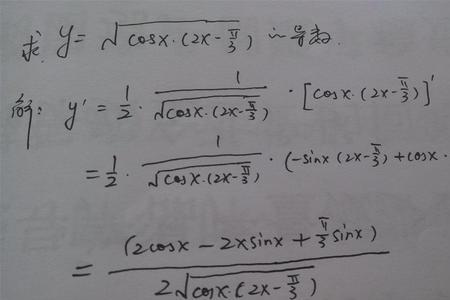 求 y=√(cosx·(2x-π/3)) 的导数.
解: y' = 1/2 · 1/√(cosx·(2x-π/3)) · [cosx·(2x-π/3)]'
= 1/2 · 1/√(cosx·(2x-π/3)) · (-sinx(2x-π/3)+cosx·
= (2cosx-2xsinx+π/3 sinx) / 2√(cosx·(2x-π/3))